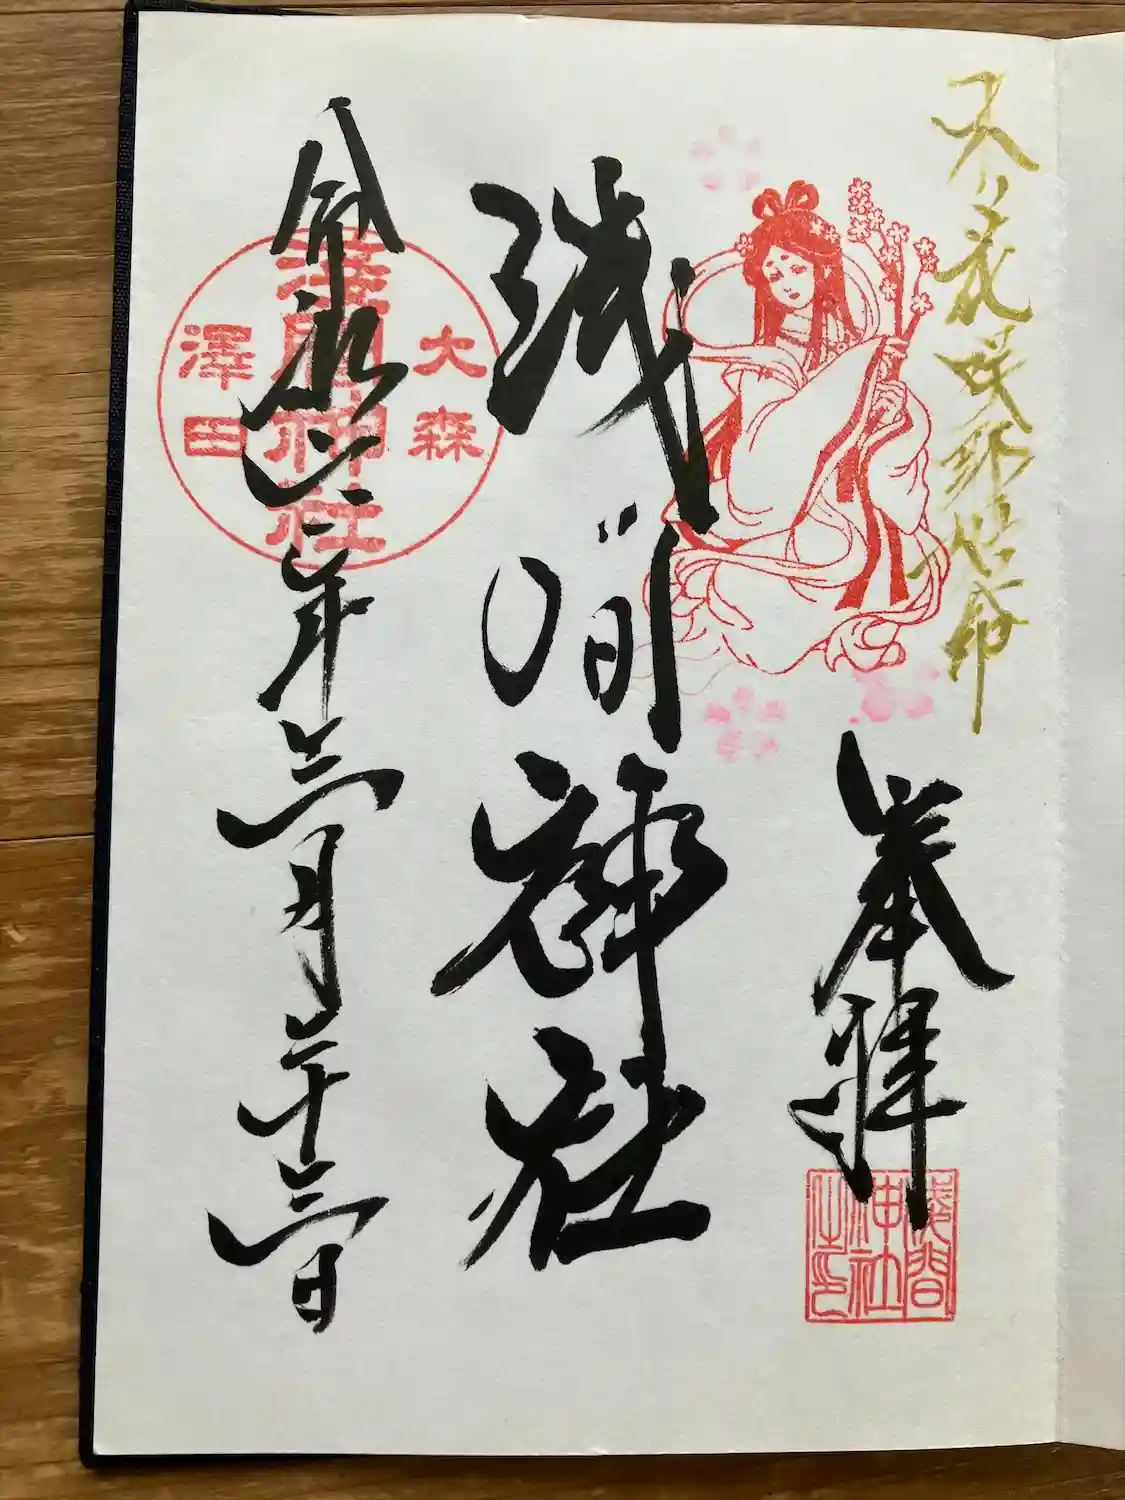 木ノ花咲耶姫命
奉拝
淺間
神社
之印
浅间神社
大森
淺間神社
澤田
令和六年三月二十三日